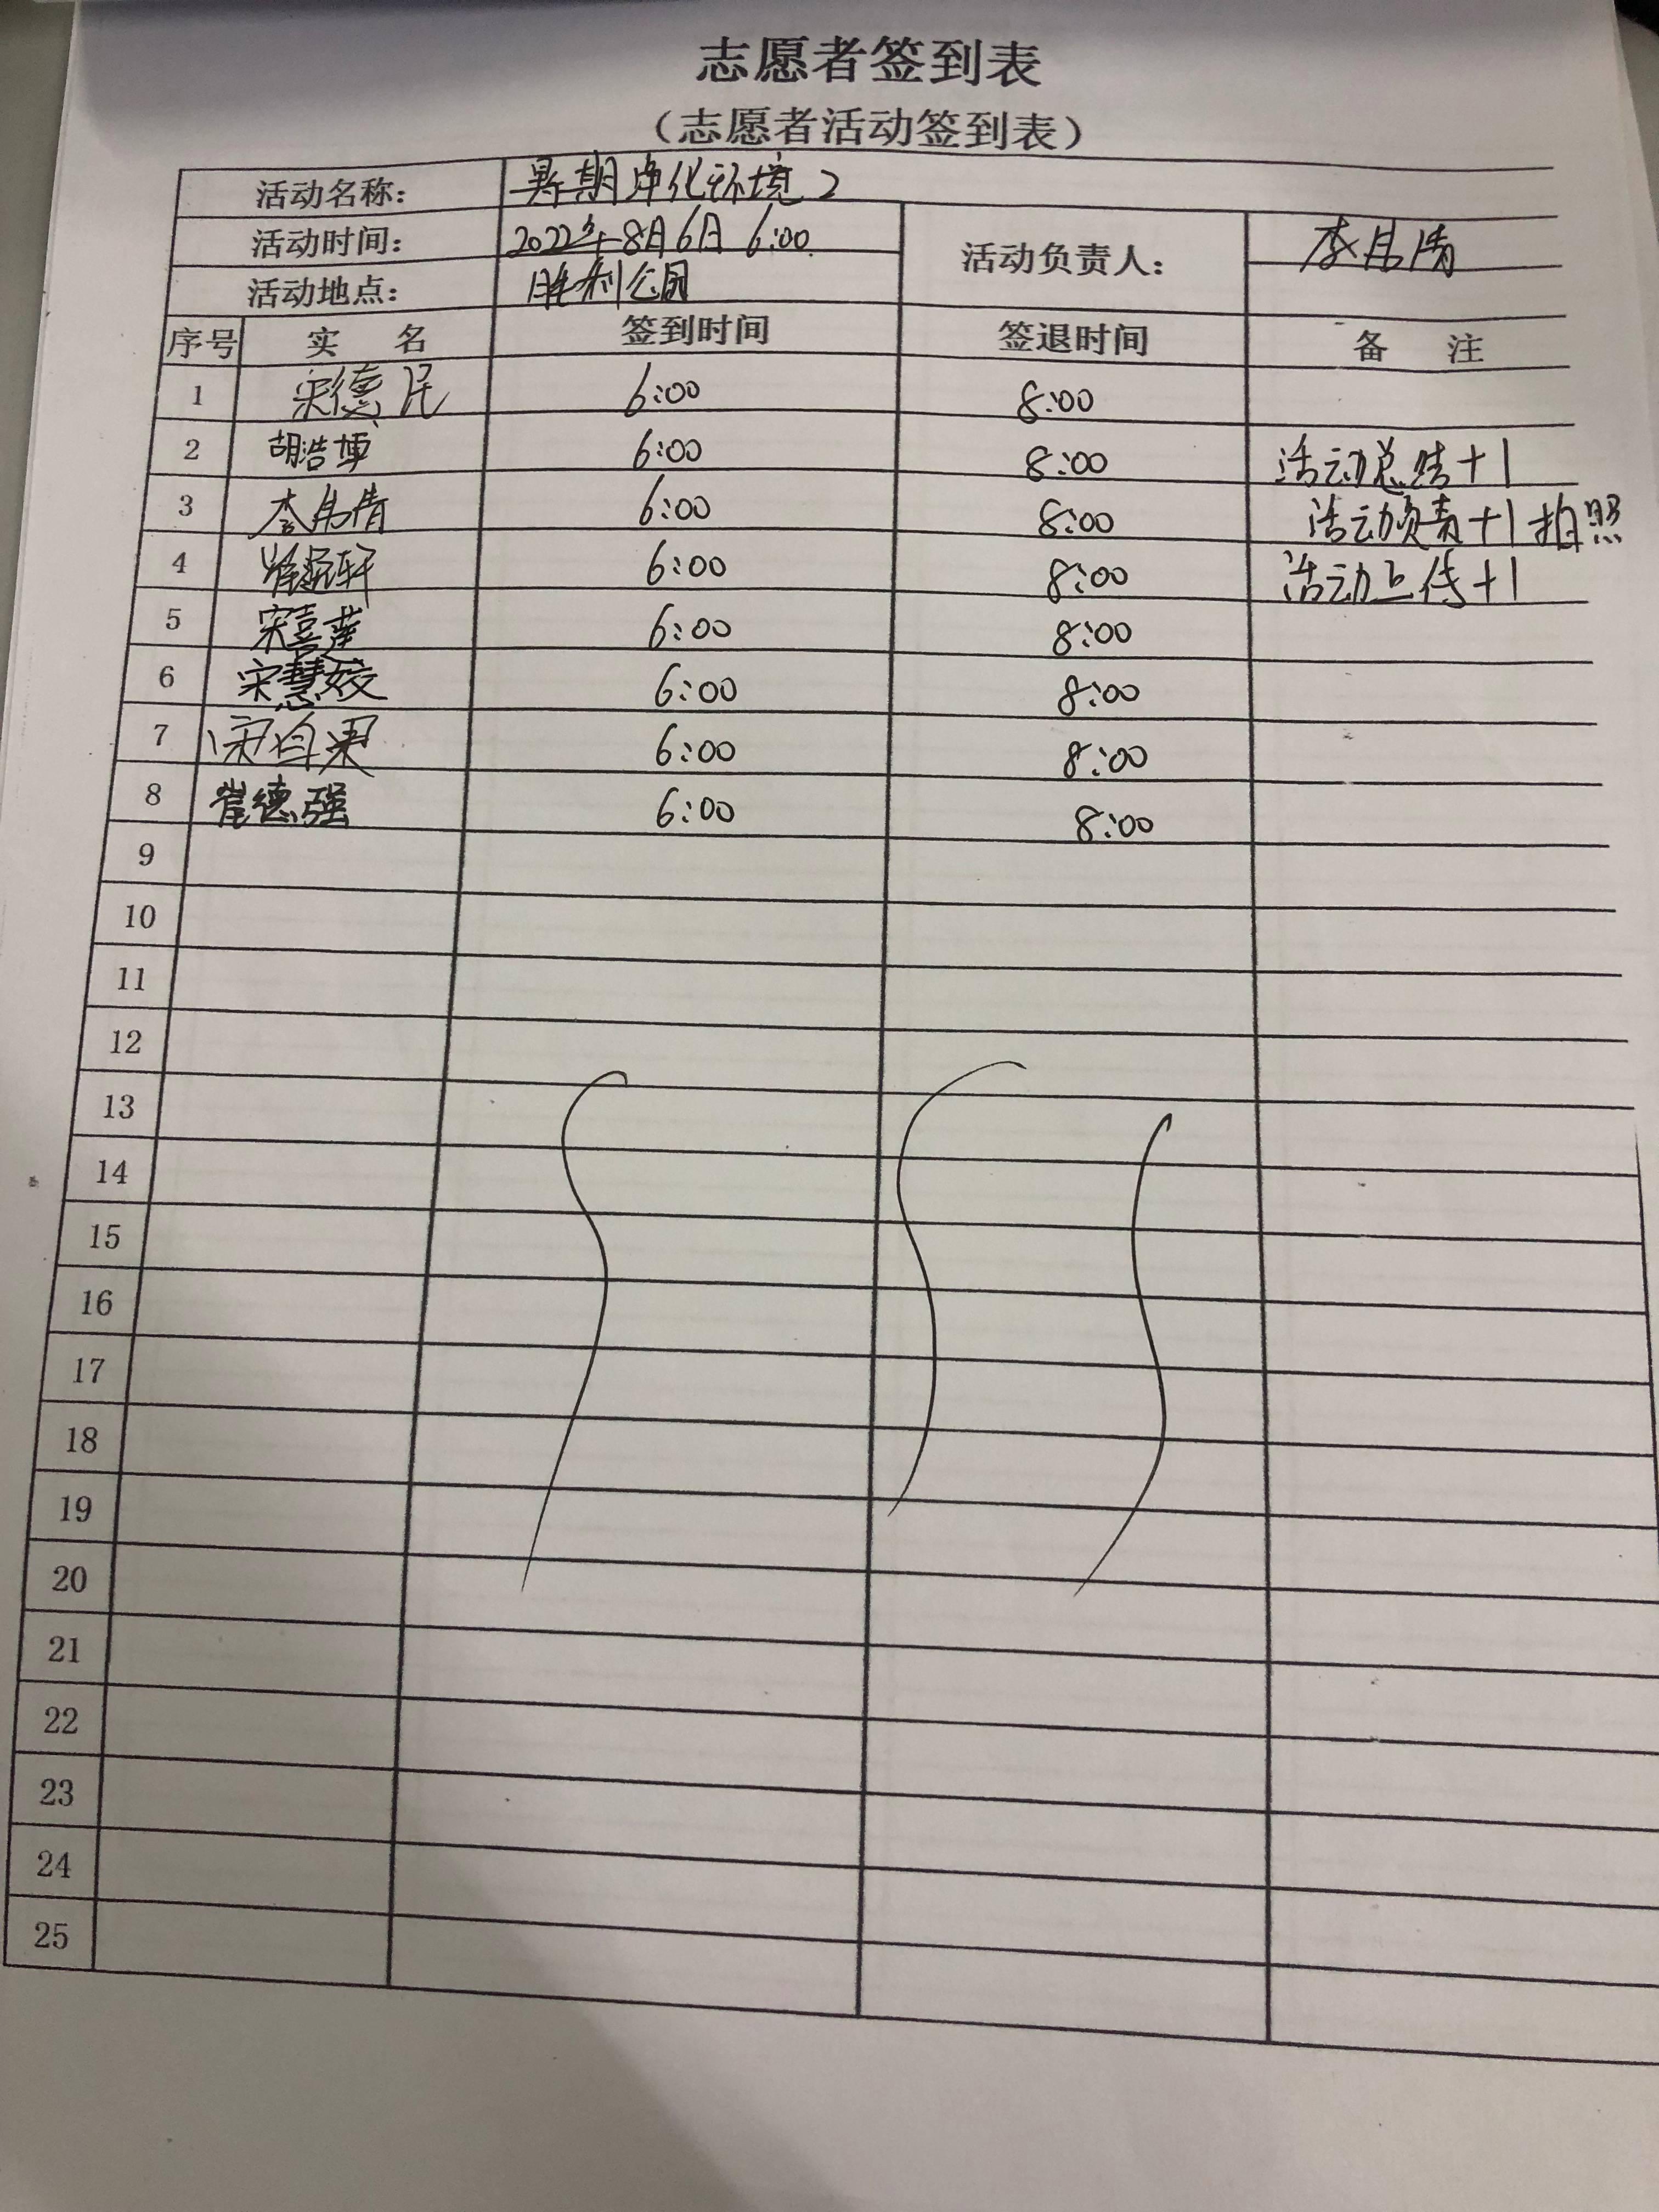 志愿者签到表
（志愿者活动签到表）
活动名称： 暑期净化环境2
活动时间： 2022年8月6日 6:00
活动负责人： 李 清
活动地点： 胜利公园
序号 实 名 签到时间 签退时间 备 注
1 宋德民 6:00 8:00
2 胡浩 6:00 8:00 活动总结+1
3 李 清 6:00 8:00 活动负责+1 拍照
4 轩 6:00 8:00 活动上传+1
5 宋喜莲 6:00 8:00
6 宋慧姣 6:00 8:00
7 宋自果 6:00 8:00
8 崔德强 6:00 8:00
9
10
11
12
13
14
15
16
17
18
19
20
21
22
23
24
25